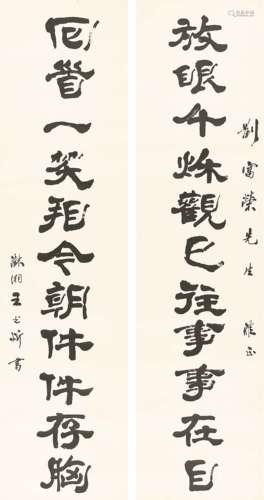 劉富榮先生 雅正
放眼千秋觀已往事事在目
一笑 今朝件件存胸
湘王 書